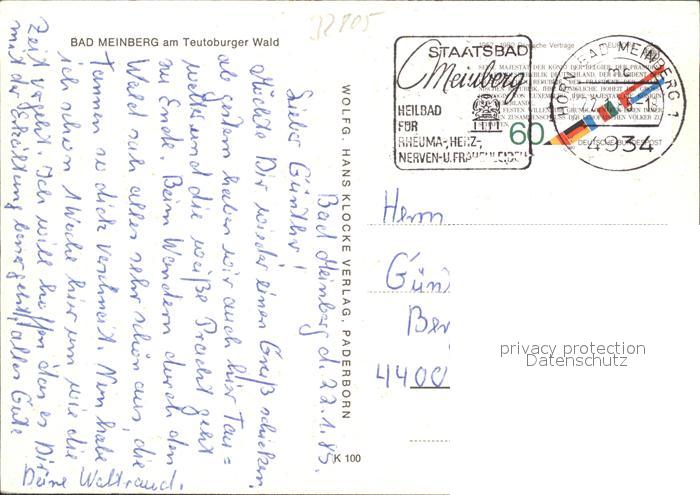 32805
BAD MEINBERG am Teutoburger Wald
Bad Meinberg d. 22.1.85.
Lieber Günther!
Möchte Dir wieder einen Gruß schicken.
ab gestern haben wir auch hier Tau=
wetter und die weiße Pracht geht
zu Ende. Beim Wandern durch den
Wald sah alles sehr schön aus, die
Tannen so dick verschneit. Nun habe
ich schon 1 Woche hier um, wie die
Zeit vergeht. Ich will hoffen das es Dir
mit der Erkältung besser geht, alles Gute
Deine Waltraud.
WOLFG. HANS KLOCKE VERLAG, PADERBORN
K 100
STAATSBAD
Meinberg
HEILBAD
FÜR
RHEUMA-, HERZ-,
NERVEN- U. FRAUENLEIDEN
HORN-BAD MEINBERG 1
4934
60
DEUTSCHE BUNDESPOST
Herrn
Gün
Ber
4400
privacy protection
Datenschutz